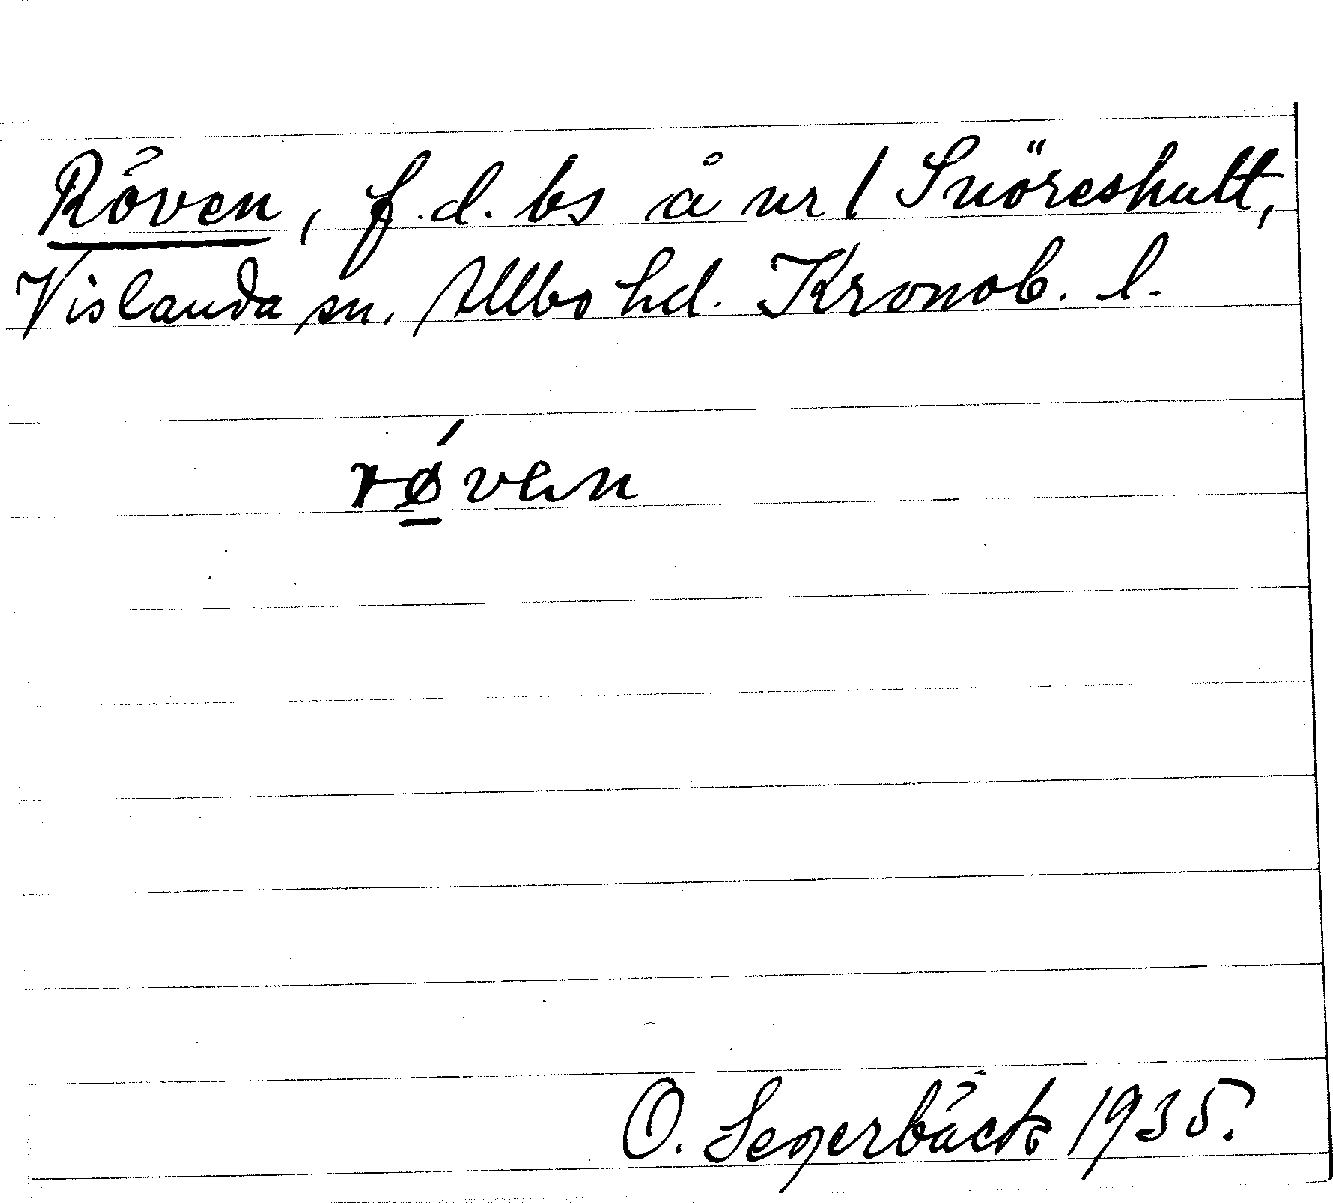 Röven, f.d. bs å nr 1 Snöreshult,
Vislanda sn. Allbo hd. Kronob. l.
rǿven
O. Segerbäck 1935.